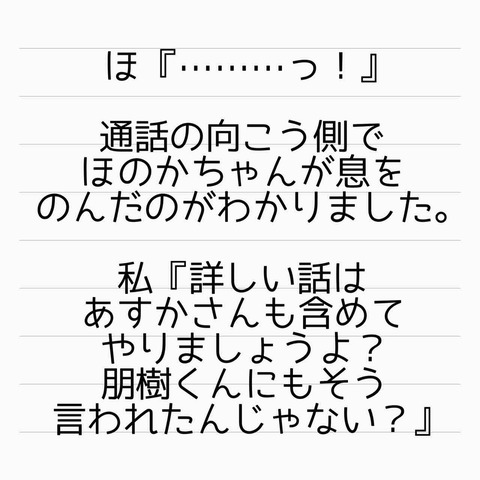 ほ『………っ！』
通話の向こう側で
ほのかちゃんが息を
のんだのがわかりました。
私『詳しい話は
あすかさんも含めて
やりましょうよ？
朋樹くんにもそう
言われたんじゃない？』